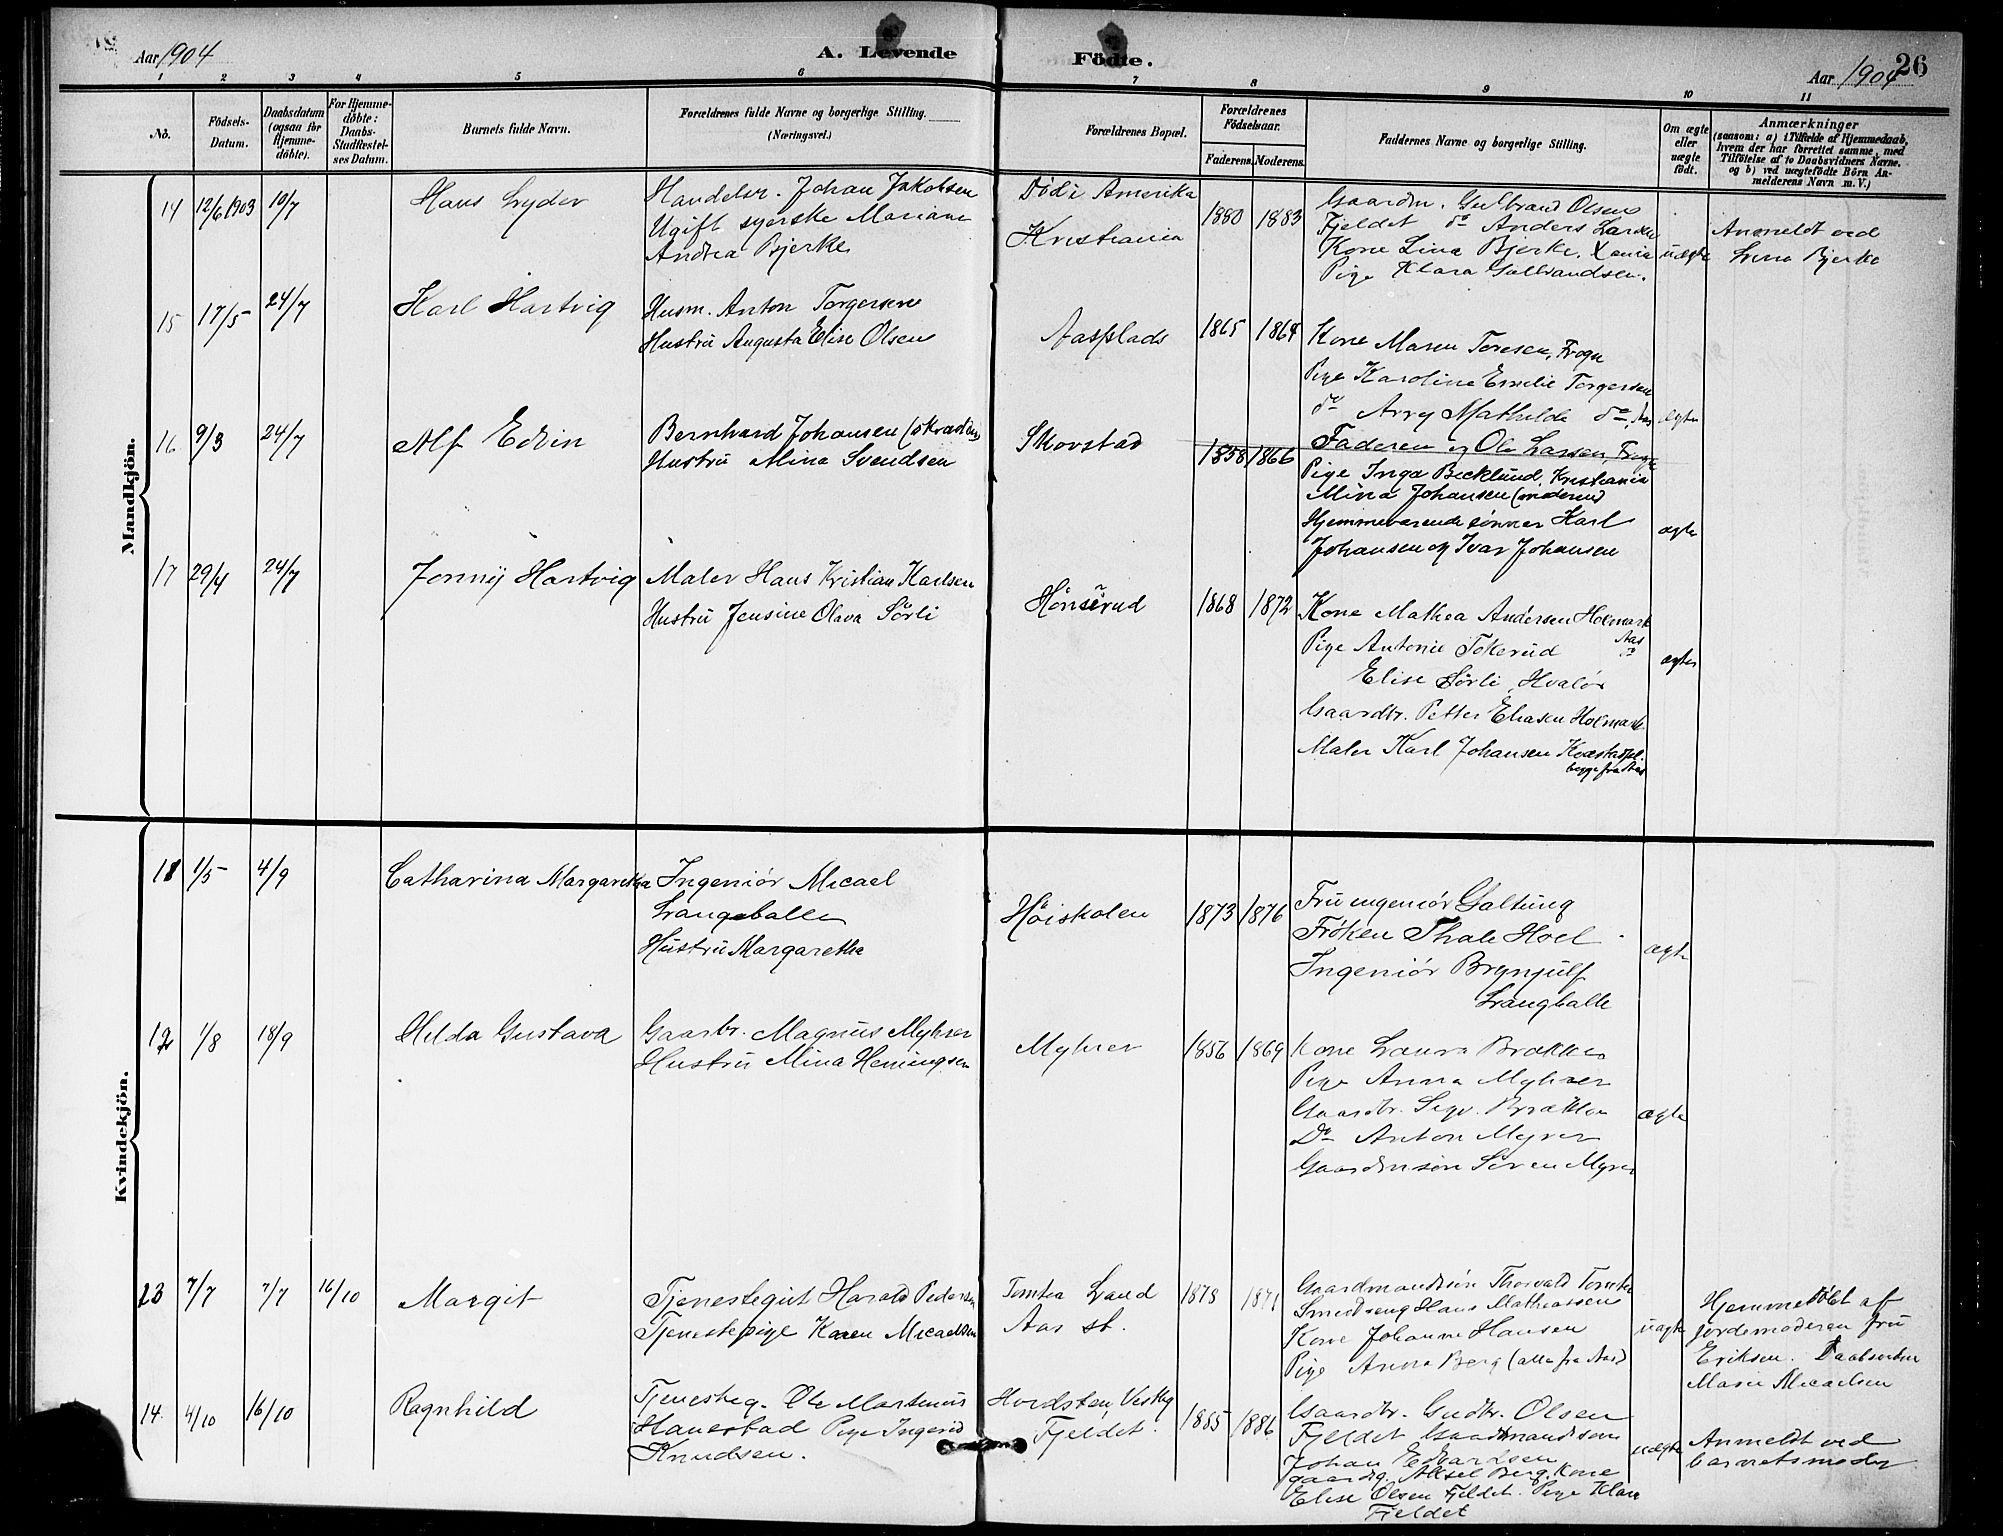 Aar 1904
A. Levende Födte.
Aar 1904 26
1 2 3 4 5 6 7 8 9 10 11
No.
Födsels-Datum.
Daabsdatum (ogsaa for Hjemmedöbte).
For Hjemmedöbte: Daabs-Stadfæstelses Datum.
Barnets fulde Navn.
Forældrenes fulde Navne og borgerlige Stilling.
(Næringsvei.)
Forældrenes Bopæl.
Forældrenes Födselsaar.
Faderens. Moderens.
Faddernes Navne og borgerlige Stilling.
Om ægte eller uægte födt.
Anmærkninger
(saasom: a) i Tilfælde af Hjemmedaab, hvem der har forrettet samme, med Tilföielse af to Daabsvidners Navne, og b) ved uægtefödte Börn Anmelderens Navn m. V.)
Mandkjön.
14 12/6 1903 10/7 Hans Lyder
Handelsr. Johan Jakobsen
Ugift syerske Mariane
Andrea Bjerke
Död i Amerika
Kristiania
1880 1883
Gaardm. Gulbrand Olsen
Fjeldet do Anders Larsen
Kone Lina Bjerke, Xania
Pige Klara Gulbrandsen.
uægte
Anmeldt ved
Lina Bjerke
15 17/5 24/7 Karl Hartvig
Husm. Anton Torgersen
Hustru Augusta Elise Olsen
Aasplads
1865 1864
Kone Maren Toresen, Frogn
Pige Karoline Emilie Torgersen
do Arry Mathilde do, Aas
ægte
16 9/3 24/7 Alf Edvin
Bernhard Johansen (skræder)
Hustru Mina Svendsen
Skovstad
1858 1866
Faderen og Ole Larsen, Frogn
Pige Inga Becklund, Kristiania
Mina Johansen (moderen)
Hjemmeværende sönner Karl
Johansen og Ivar Johansen
ægte
17 29/4 24/7 Jonny Hartvig
Maler Hans Kristian Karlsen
Hustru Jensine Olava Sörli
Hönserud
1868 1872
Kone Mathea Andersen Holmark
Aas
Pige Antonie Tokerud do
Elise Sörli, Hvalör
Gaardbr. Petter Eliasen Holmark
Maler Karl Johansen
begge fra Aas
ægte
Kvindekjön.
11 1/5 4/9 Catharina Margaretha
Ingeniör Micael
Langballe
Hustru Margaretha
Höiskolen
1873 1876
Fru ingeniör Galtung
Fröken Thale Hoel
Ingeniör Brynjulf
Langballe
ægte
12 1/8 18/9 Hilda Gustava
Gaarbr. Magnus Myhrer
Hustru Mina Heningsen
Myhrer
1856 1869
Kone Laura Brække
Pige Anna Myhrer
Gaardbr. Sigv. Brække
Do Anton Myrer
Gaardmsön Sören Myrer
ægte
13 7/7 7/7 16/10 Margit
Tjenestegut Harald Pedersen
Tjenestepige Karen Micaelsen
Tomten Land
Aas st.
1878 1871
Gaardmandssön Thorvald Tomter
Smedseng Hans Mathiassen
Kone Johanne Hansen
Pige Anna Berg (alle fra Aas)
uægte
Hjemmedöbt af
jordemoderen fru
Eriksen. Daabsvidne
Marie Micaelsen
14 4/10 16/10 Ragnhild
Tjenesteg. Ole Martinius
Hanestad Pige Ingerid
Knudsen.
Hvidsten, Vestby
Fjeldet.
1885 1886
Gaardbr. Gudbr. Olsen
Fjeldet Gaardmandssön
Johan Edvardsen
gaardg. Aksel Berg, Kone
Elise Olsen Fjeldet. Pige Klara
Fjeldet
uægte
Anmeldt ved
barnetsmoder